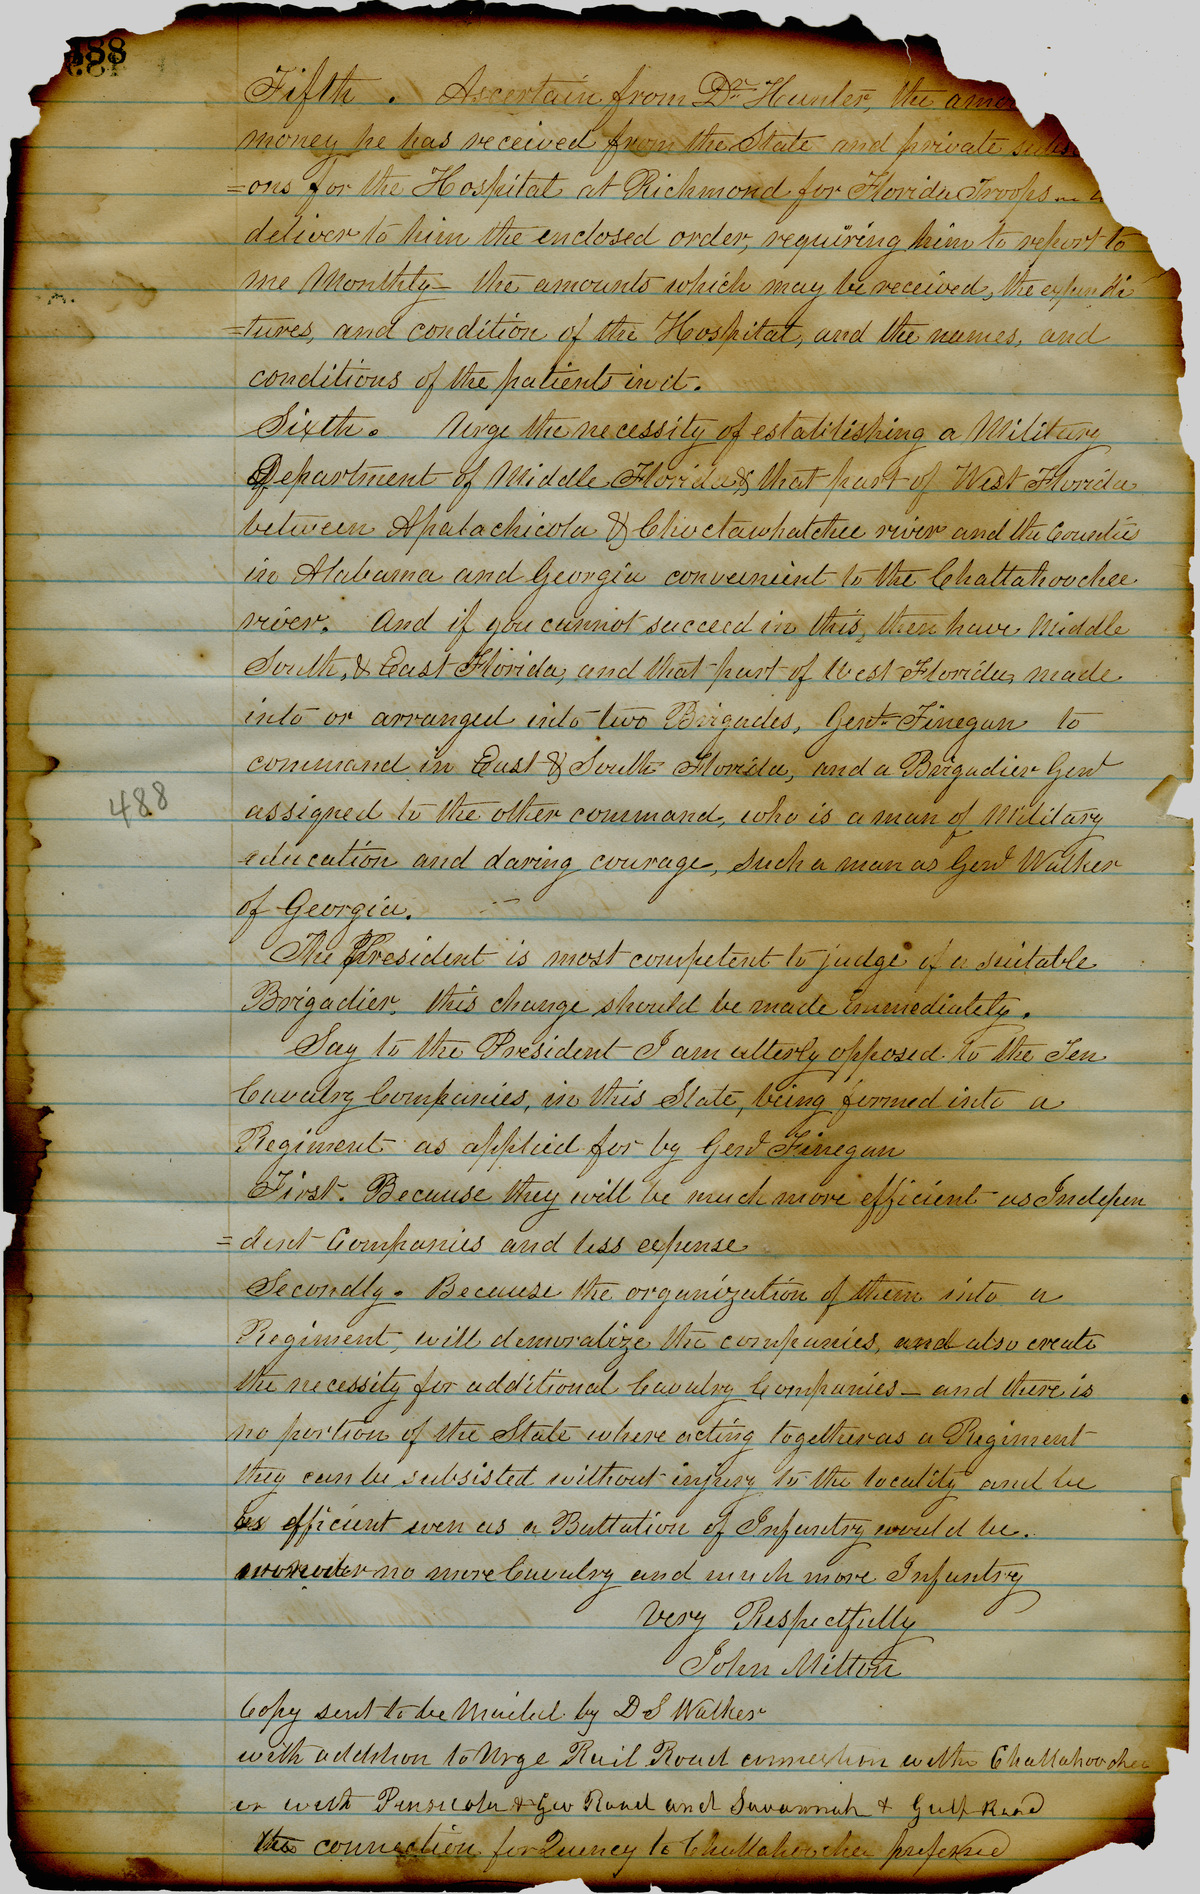 488
Fifth. Ascertain from Dr Hunter, the
money he has received from the State and private
=ons for the Hospital at Richmond for Florida Troops
deliver to him the enclosed order, requiring him to report to
me Monthly the amounts which may be received, the expendi
=tures, and condition of the Hospital, and the names, and
conditions of the patients in it.
Sixth. Urge the necessity of establishing a Military
Department of Middle Florida & that part of West Florida
between Apalachicola & Choctawhatchee river and the Counties
in Alabama and Georgia convenient to the Chattahoochee
river. And if you cannot succeed in this, then have Middle
South, & East Florida, and that part of West Florida, made
into or arranged into two Brigades, Genl Finegan to
command in East & South Florida, and a Brigadier Genl
488
assigned to the other command, who is a man of Military
education and daring courage, such a man as Genl Walker
of Georgia.
The President is most competent to judge of a suitable
Brigadier. this change should be made immediately.
Say to the President I am utterly opposed to the Ten
Cavalry Companies, in this State, being formed into a
Regiment as applied for by Genl Finegan
First. Because they will be much more efficient as Indepen
=dent Companies and less expense
Secondly. Because the organization of them into a
Regiment, will demoralize the companies, and also create
the necessity for additional Cavalry Companies – and there is
no portion of the State where acting together as a Regiment
they can be subsisted without injury to the locality and be
as efficient even as a Battalion of Infantry would be.
no more Cavalry and much more Infantry
Very Respectfully
John Milton
Copy sent to be Mailed by D S Walker
with addition to Urge Rail Road connection with Chattahoochee
or with Pensicola & Geo Road and Savannah & Gulf Road
the connection for Quincy to Chattahoochee prefered